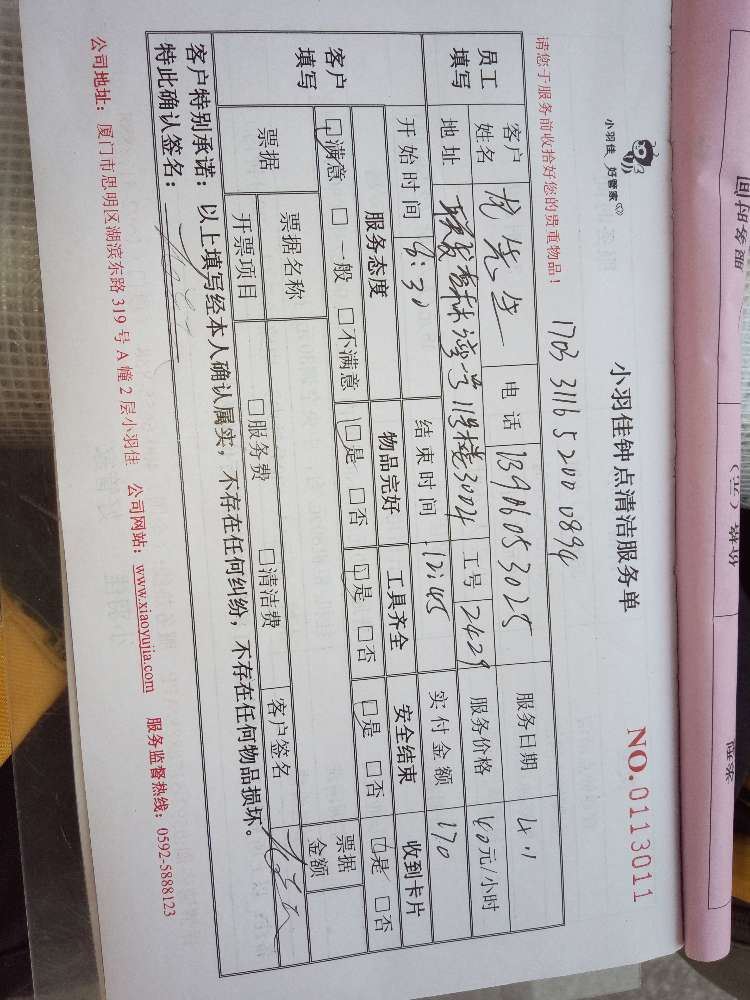 小羽佳 好管家
小羽佳钟点清洁服务单
NO.0113011
1703 3116 5200 0894
请您于服务前收拾好您的贵重物品！
员工填写
客户姓名 先生 电话 服务日期 4.1
地址 11号楼3004 工号 2429 服务价格 40元/小时
开始时间 8:30 结束时间 12:45 实付金额 170
客户填写
服务态度 物品完好 工具齐全 安全结束 收到卡片
□满意 □一般 □不满意 □是 □否 □是 □否 □是 □否 □是 □否
票据 票据名称 票据金额
开票项目 □服务费 □清洁费 客户签名
客户特别承诺：以上填写经本人确认属实，不存在任何纠纷，不存在任何物品损坏。
特此确认签名：
公司地址：厦门市思明区湖滨东路319号A幢2层小羽佳 公司网站：www.xiaoyujia.com 服务监督热线：0592-5888123